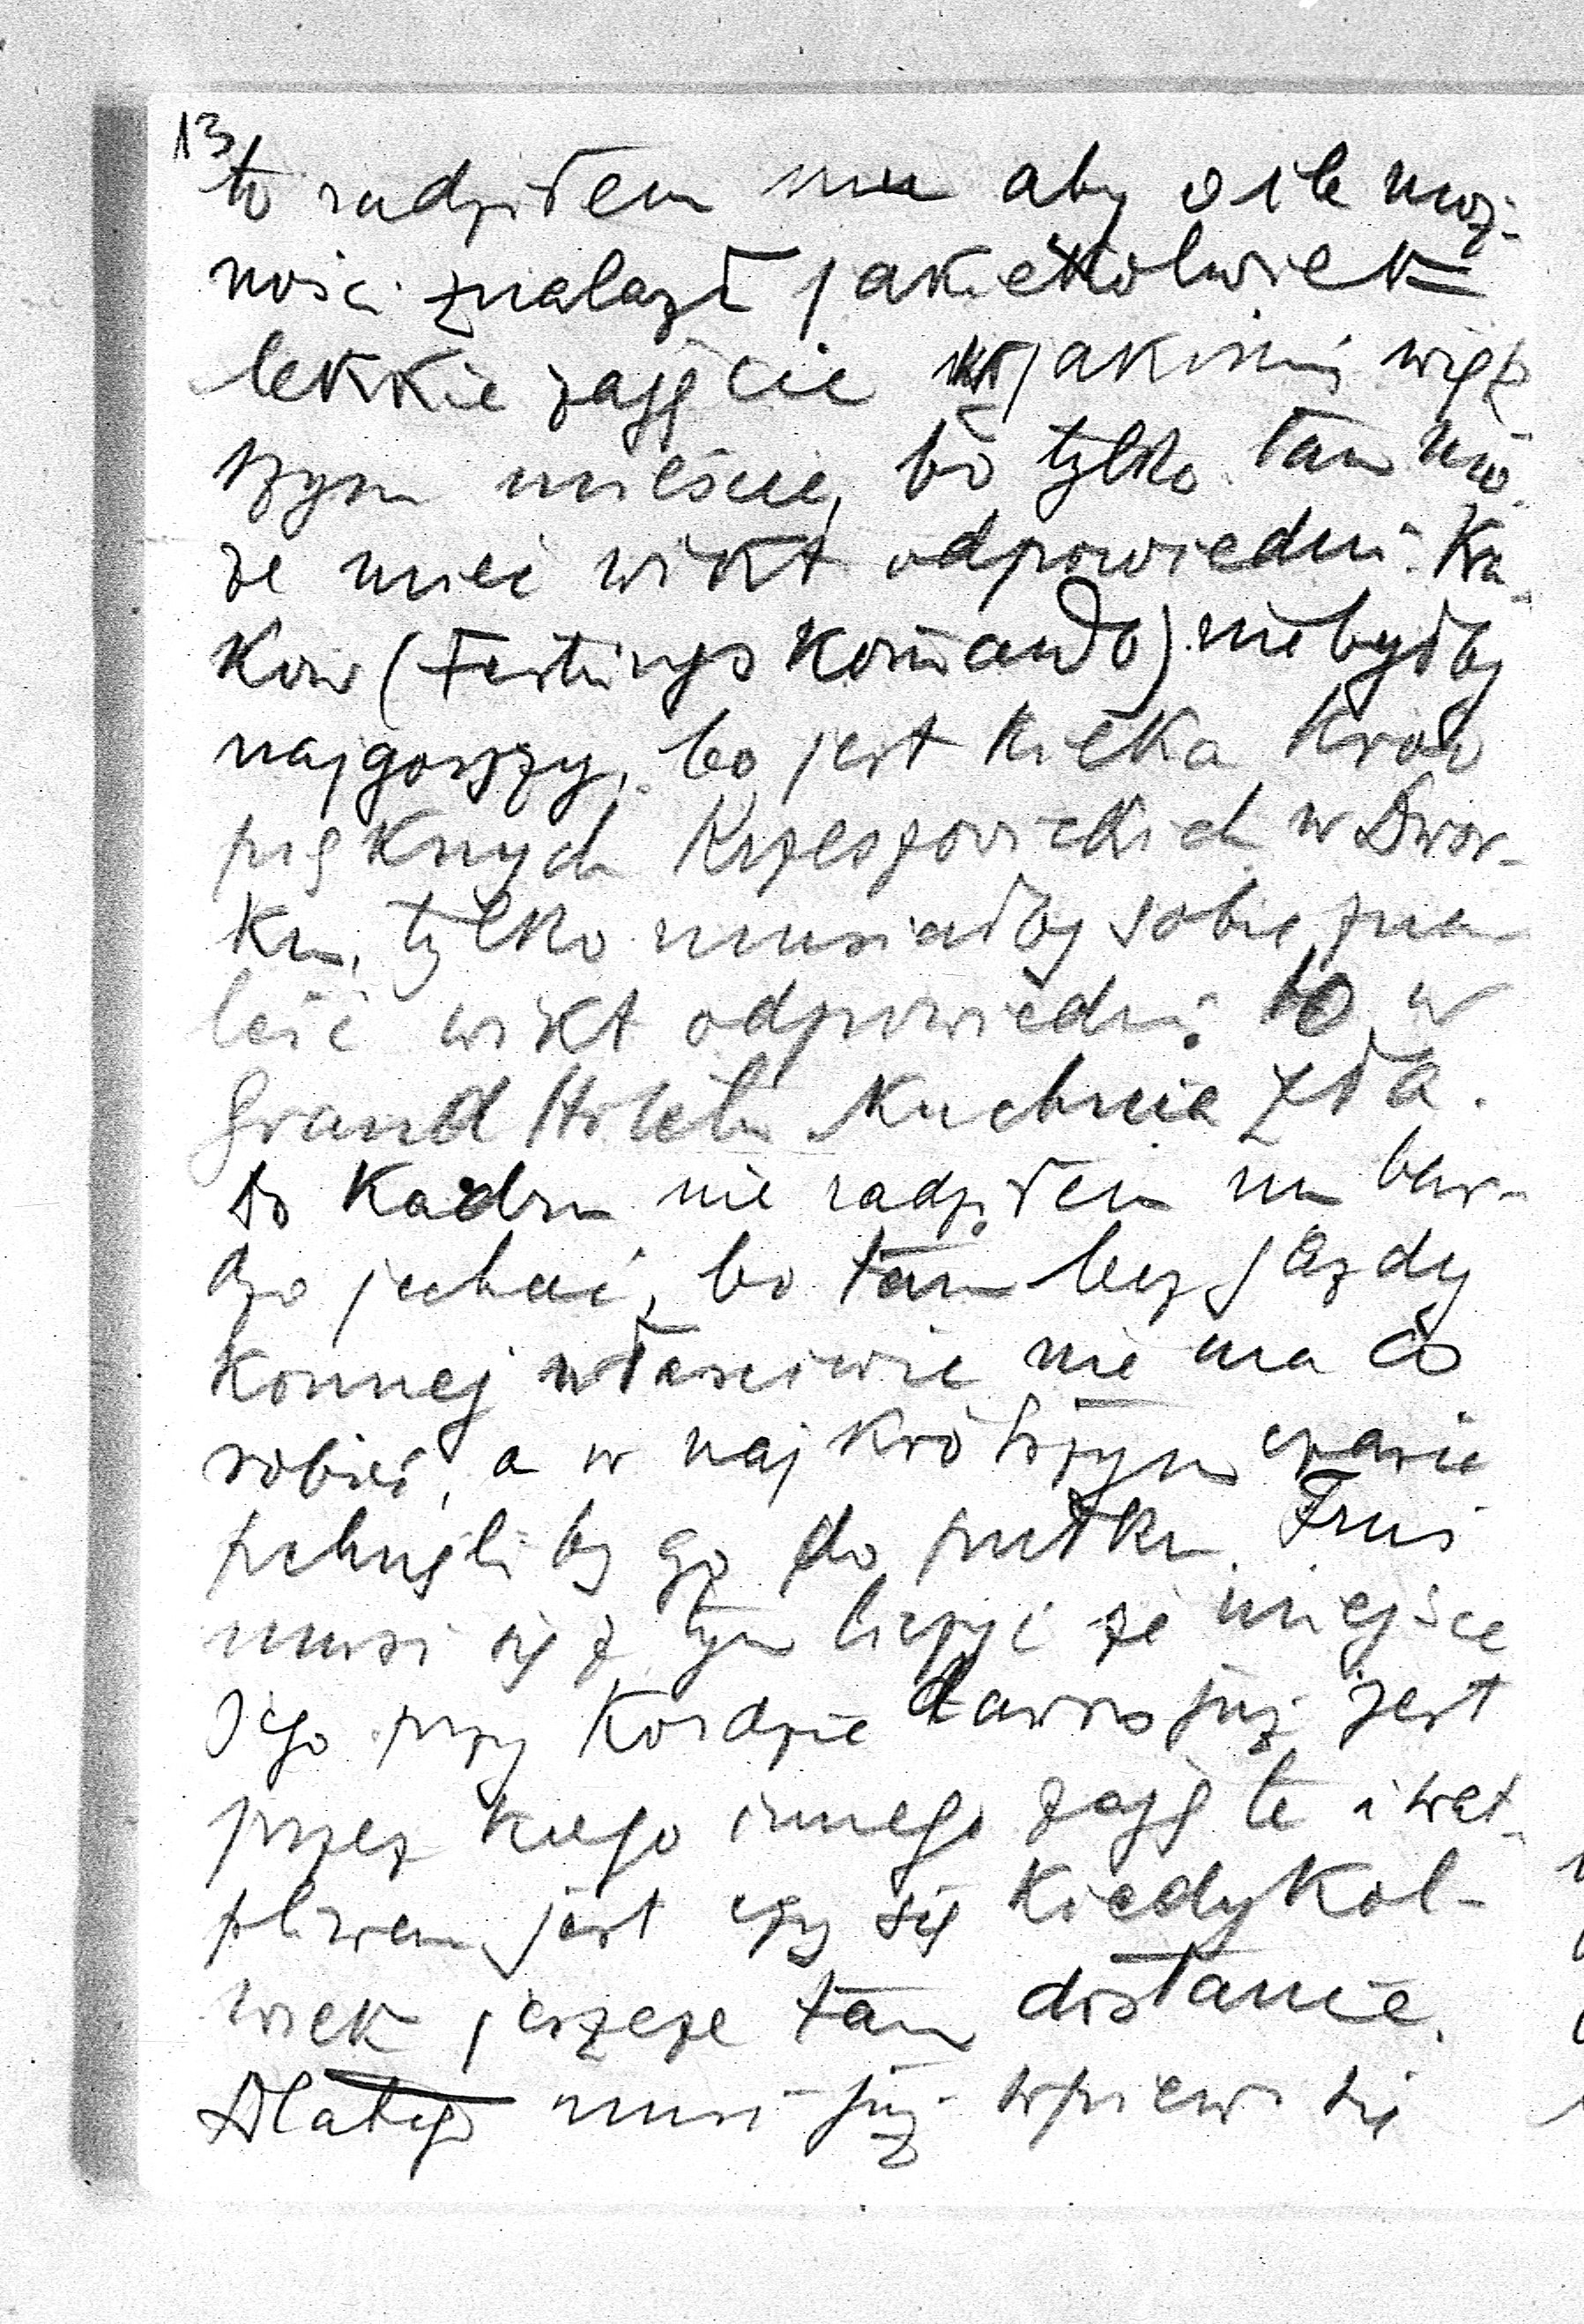 13
to radziłem mu aby o ile moż-
ności znalazł jakiekolwiek
lekkie zajęcie w jakimś więk
szym mieście, bo tylko tam mo
że mieć wikt odpowiedni. Kra-
ków (Festungskomando) nie byłby
najgorszy, bo jest kilka krów
pięknych Krzeszowickich w Dwor-
ku, tylko musiałby sobie zna
leść wikt odpowiedni, bo w
Grand Hotelu kuchnia zła.
Do Kadru nie radziłem mu bar-
dzo jechać, bo tam bez jazdy
konnej właściwie nie ma co
robić, a w najkrótszym czasie
pchnęli by go do pułku. Fruś
musi się z tym liczyć że miejsce
Jego przy Kordzie dawno już jest
przez kogo innego zajęte i wąt-
pliwem jest czy się kiedykol-
wiek jeszcze tam dostanie.
Dlatego musi już wpierw się